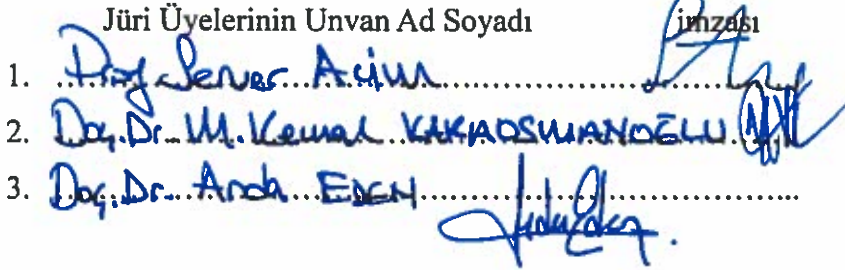 Jüri Üyelerinin Unvan Ad Soyadı imzası
1. Prof. Server Acim
2. Doç. Dr. M. Kemal KARAOSMANOĞLU
3. Doç. Dr. Arda EDEN